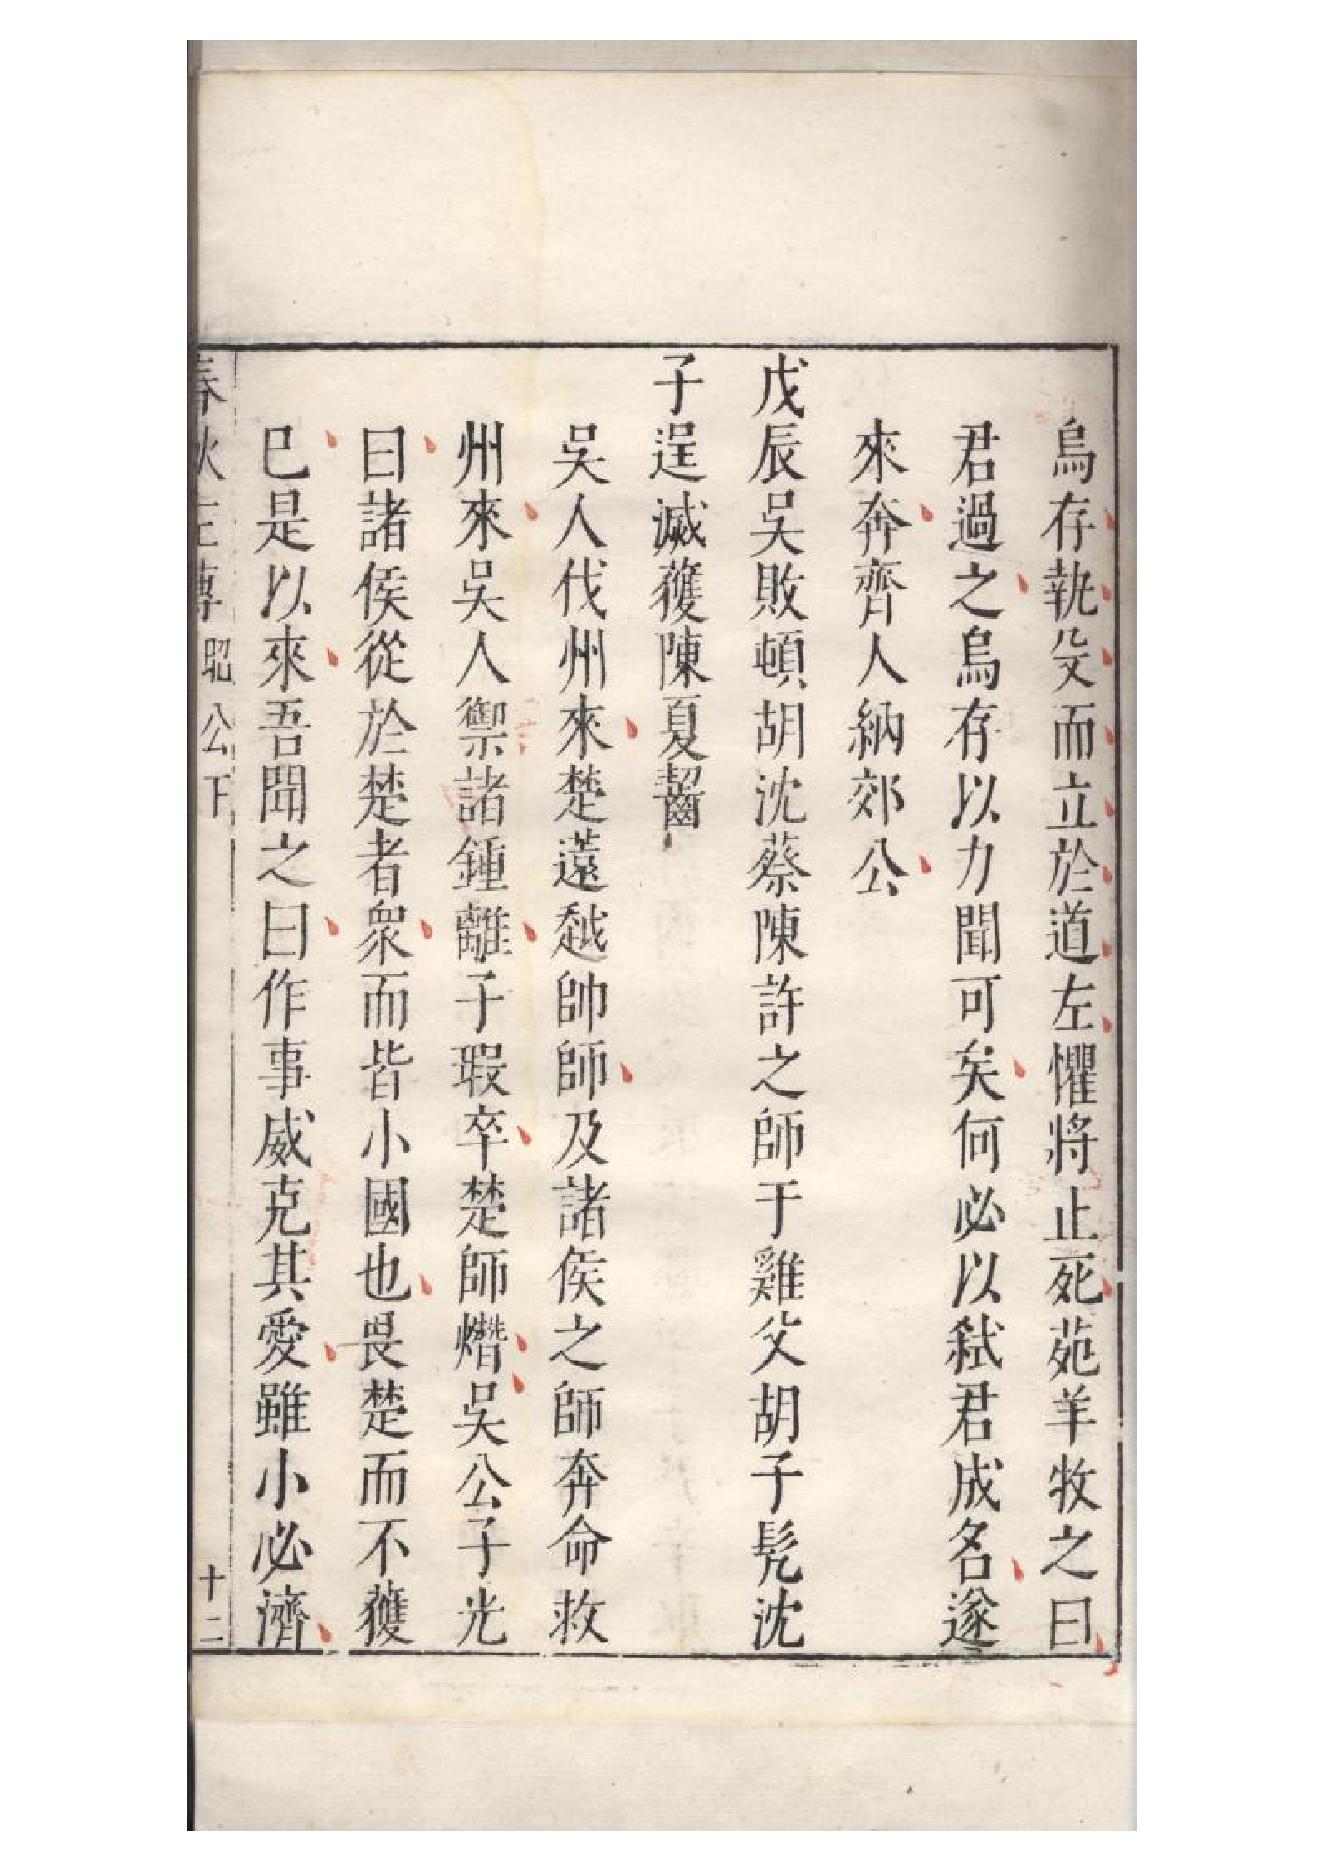 烏存執殳而立於道左懼將止死苑羊牧之曰
君過之烏存以力聞可矣何必以弑君成名遂
來奔齊人納郊公
戊辰吳敗頓胡沈蔡陳許之師于雞父胡子髡沈
子逞滅獲陳夏齧
吳人伐州來楚薳越帥師及諸侯之師奔命救
州來吳人禦諸鍾離子瑕卒楚師熸吳公子光
曰諸侯從於楚者衆而皆小國也畏楚而不獲
已是以來吾聞之曰作事威克其愛雖小必濟
春秋左傳 昭公下 十二